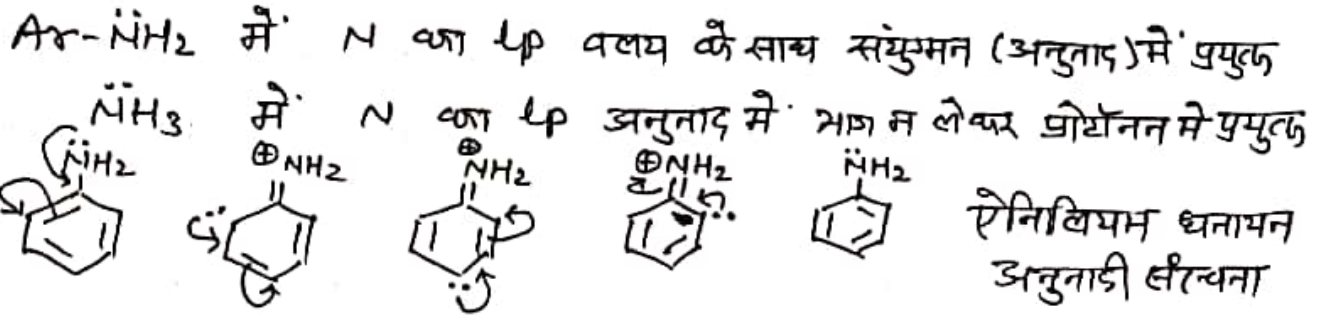 Ar-N̈H2 में N का lp वलय के साथ संयुग्मन (अनुनाद) में प्रयुक्त
N̈H3 में N का lp अनुनाद में भाग न लेकर प्रोटॉनन मे प्रयुक्त
N̈H2 ⊕NH2 ⊕NH2 ⊕NH2 N̈H2
ऐनिलियम धनायन
अनुनादी संरचना